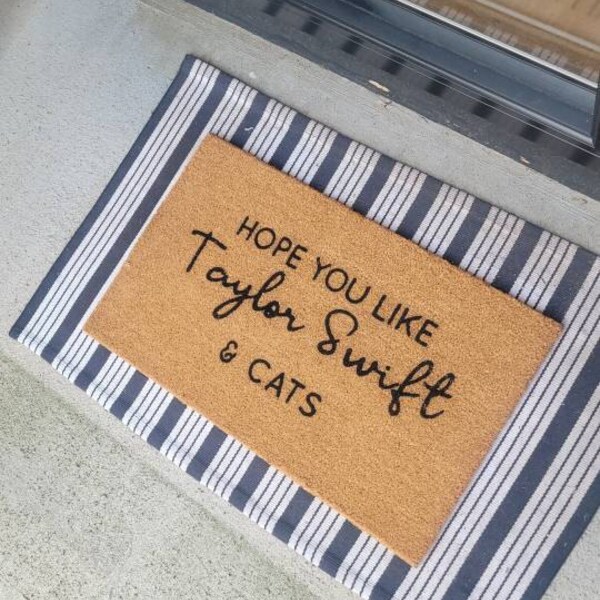 HOPE YOU LIKE
Taylor Swift
& CATS